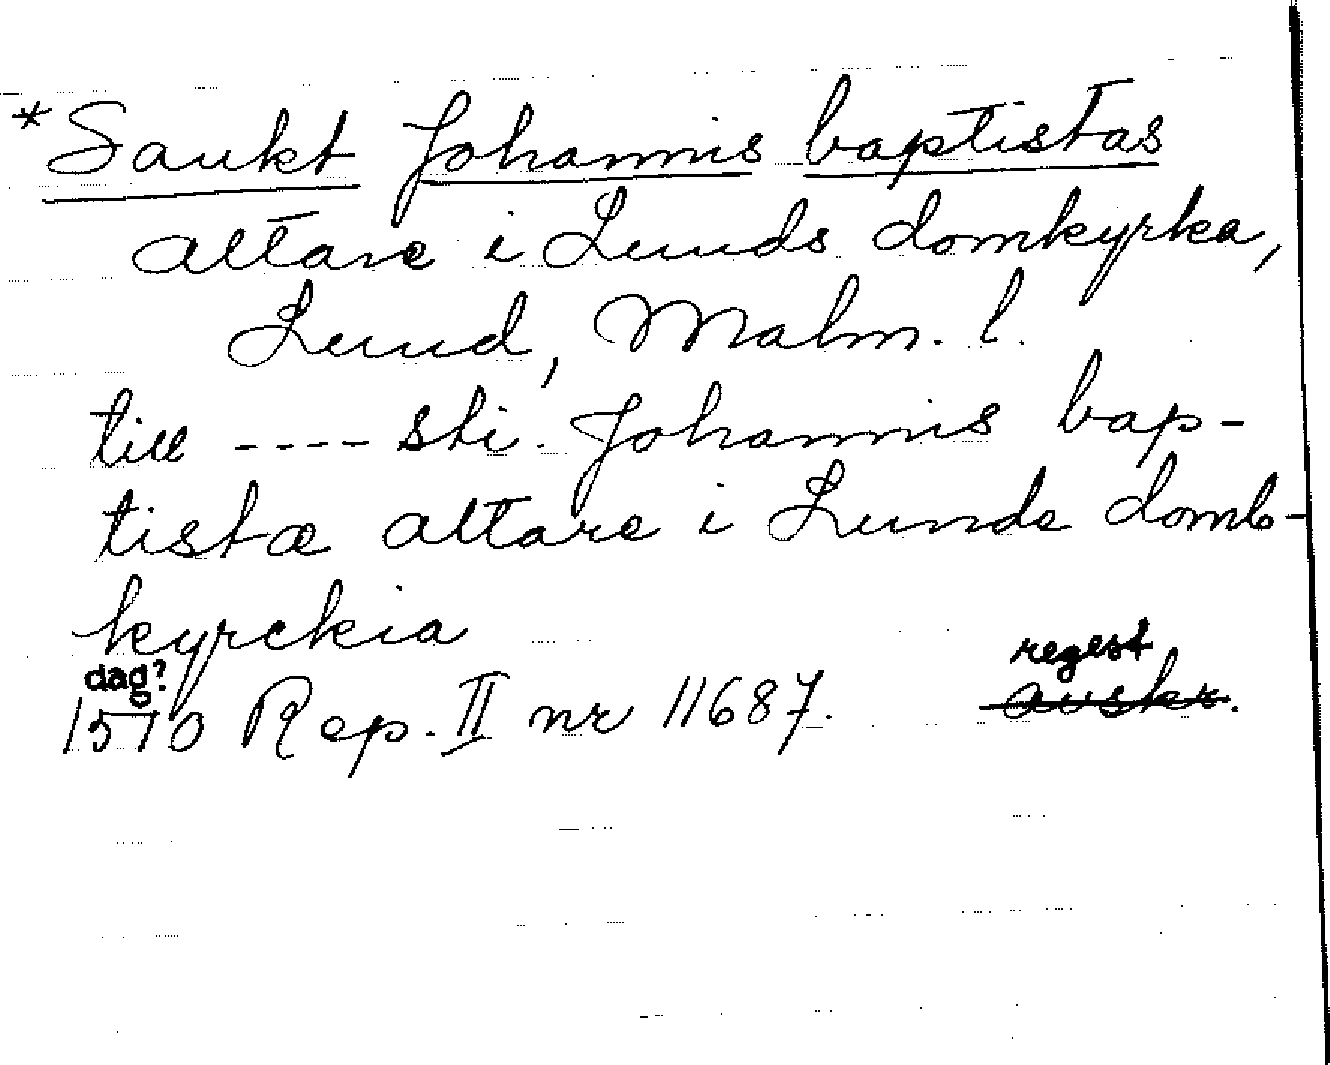 *Sankt Johannis baptistas
altare i Lunds domkyrka,
Lund, Malm. l.
till ---- sti. Johannis bap-
tistæ altare i Lunde domb-
kyrckia
dag? regest
1510 Rep. II nr 11687. avskr.